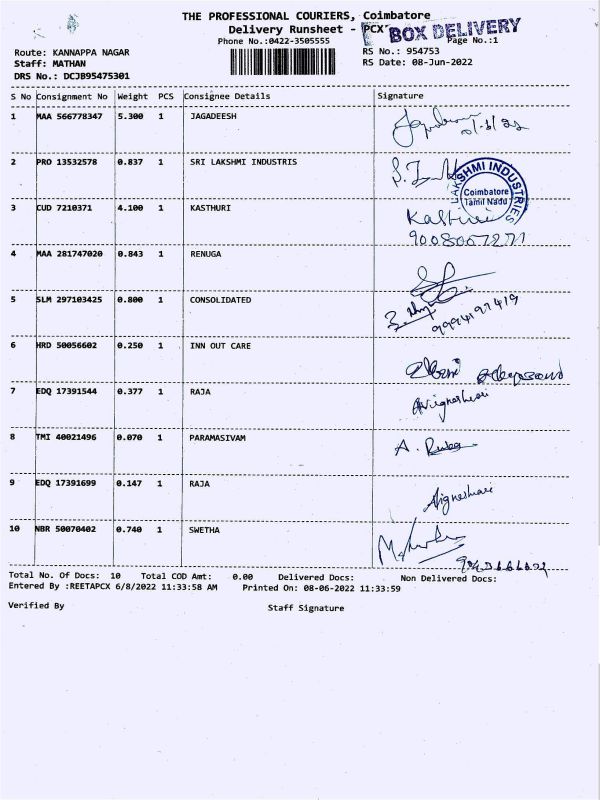 THE PROFESSIONAL COURIERS, Coimbatore
Delivery Runsheet - PCX
BOX DELIVERY
Phone No.:0422-3505555
Page No.:1
Route: KANNAPPA NAGAR
RS No.: 954753
Staff: MATHAN
RS Date: 08-Jun-2022
DRS No.: DCJB95475301
S No Consignment No Weight PCS Consignee Details Signature
1 MAA 566778347 5.300 1 JAGADEESH
2 PRO 13532578 0.837 1 SRI LAKSHMI INDUSTRIS
LAKSHMI INDUSTRIES
Coimbatore
Tamil Nadu
3 CUD 7210371 4.100 1 KASTHURI Kasthuri
4 MAA 281747020 0.843 1 RENUGA
5 SLM 297103425 0.800 1 CONSOLIDATED
9994197419
6 HRD 50056602 0.250 1 INN OUT CARE
7 EDQ 17391544 0.377 1 RAJA
8 TMI 40021496 0.070 1 PARAMASIVAM
9 EDQ 17391699 0.147 1 RAJA
10 NBR 50070402 0.740 1 SWETHA
Total No. Of Docs: 10 Total COD Amt: 0.00 Delivered Docs: Non Delivered Docs:
Entered By :REETAPCX 6/8/2022 11:33:58 AM Printed On: 08-06-2022 11:33:59
Verified By Staff Signature